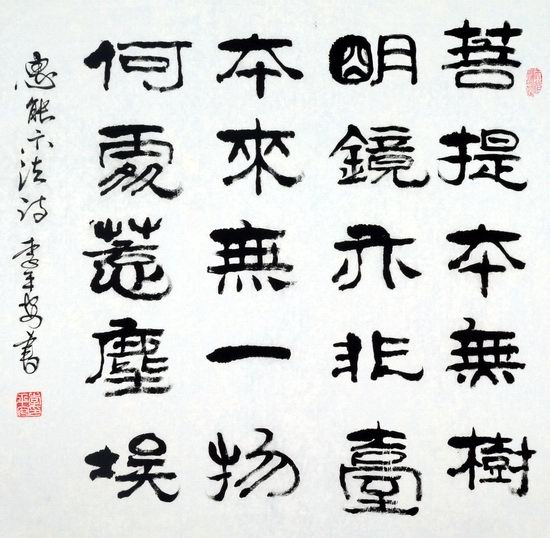 菩提本無樹
明鏡亦非臺
本來無一物
何處惹塵埃
惠能示法诗 李平安書